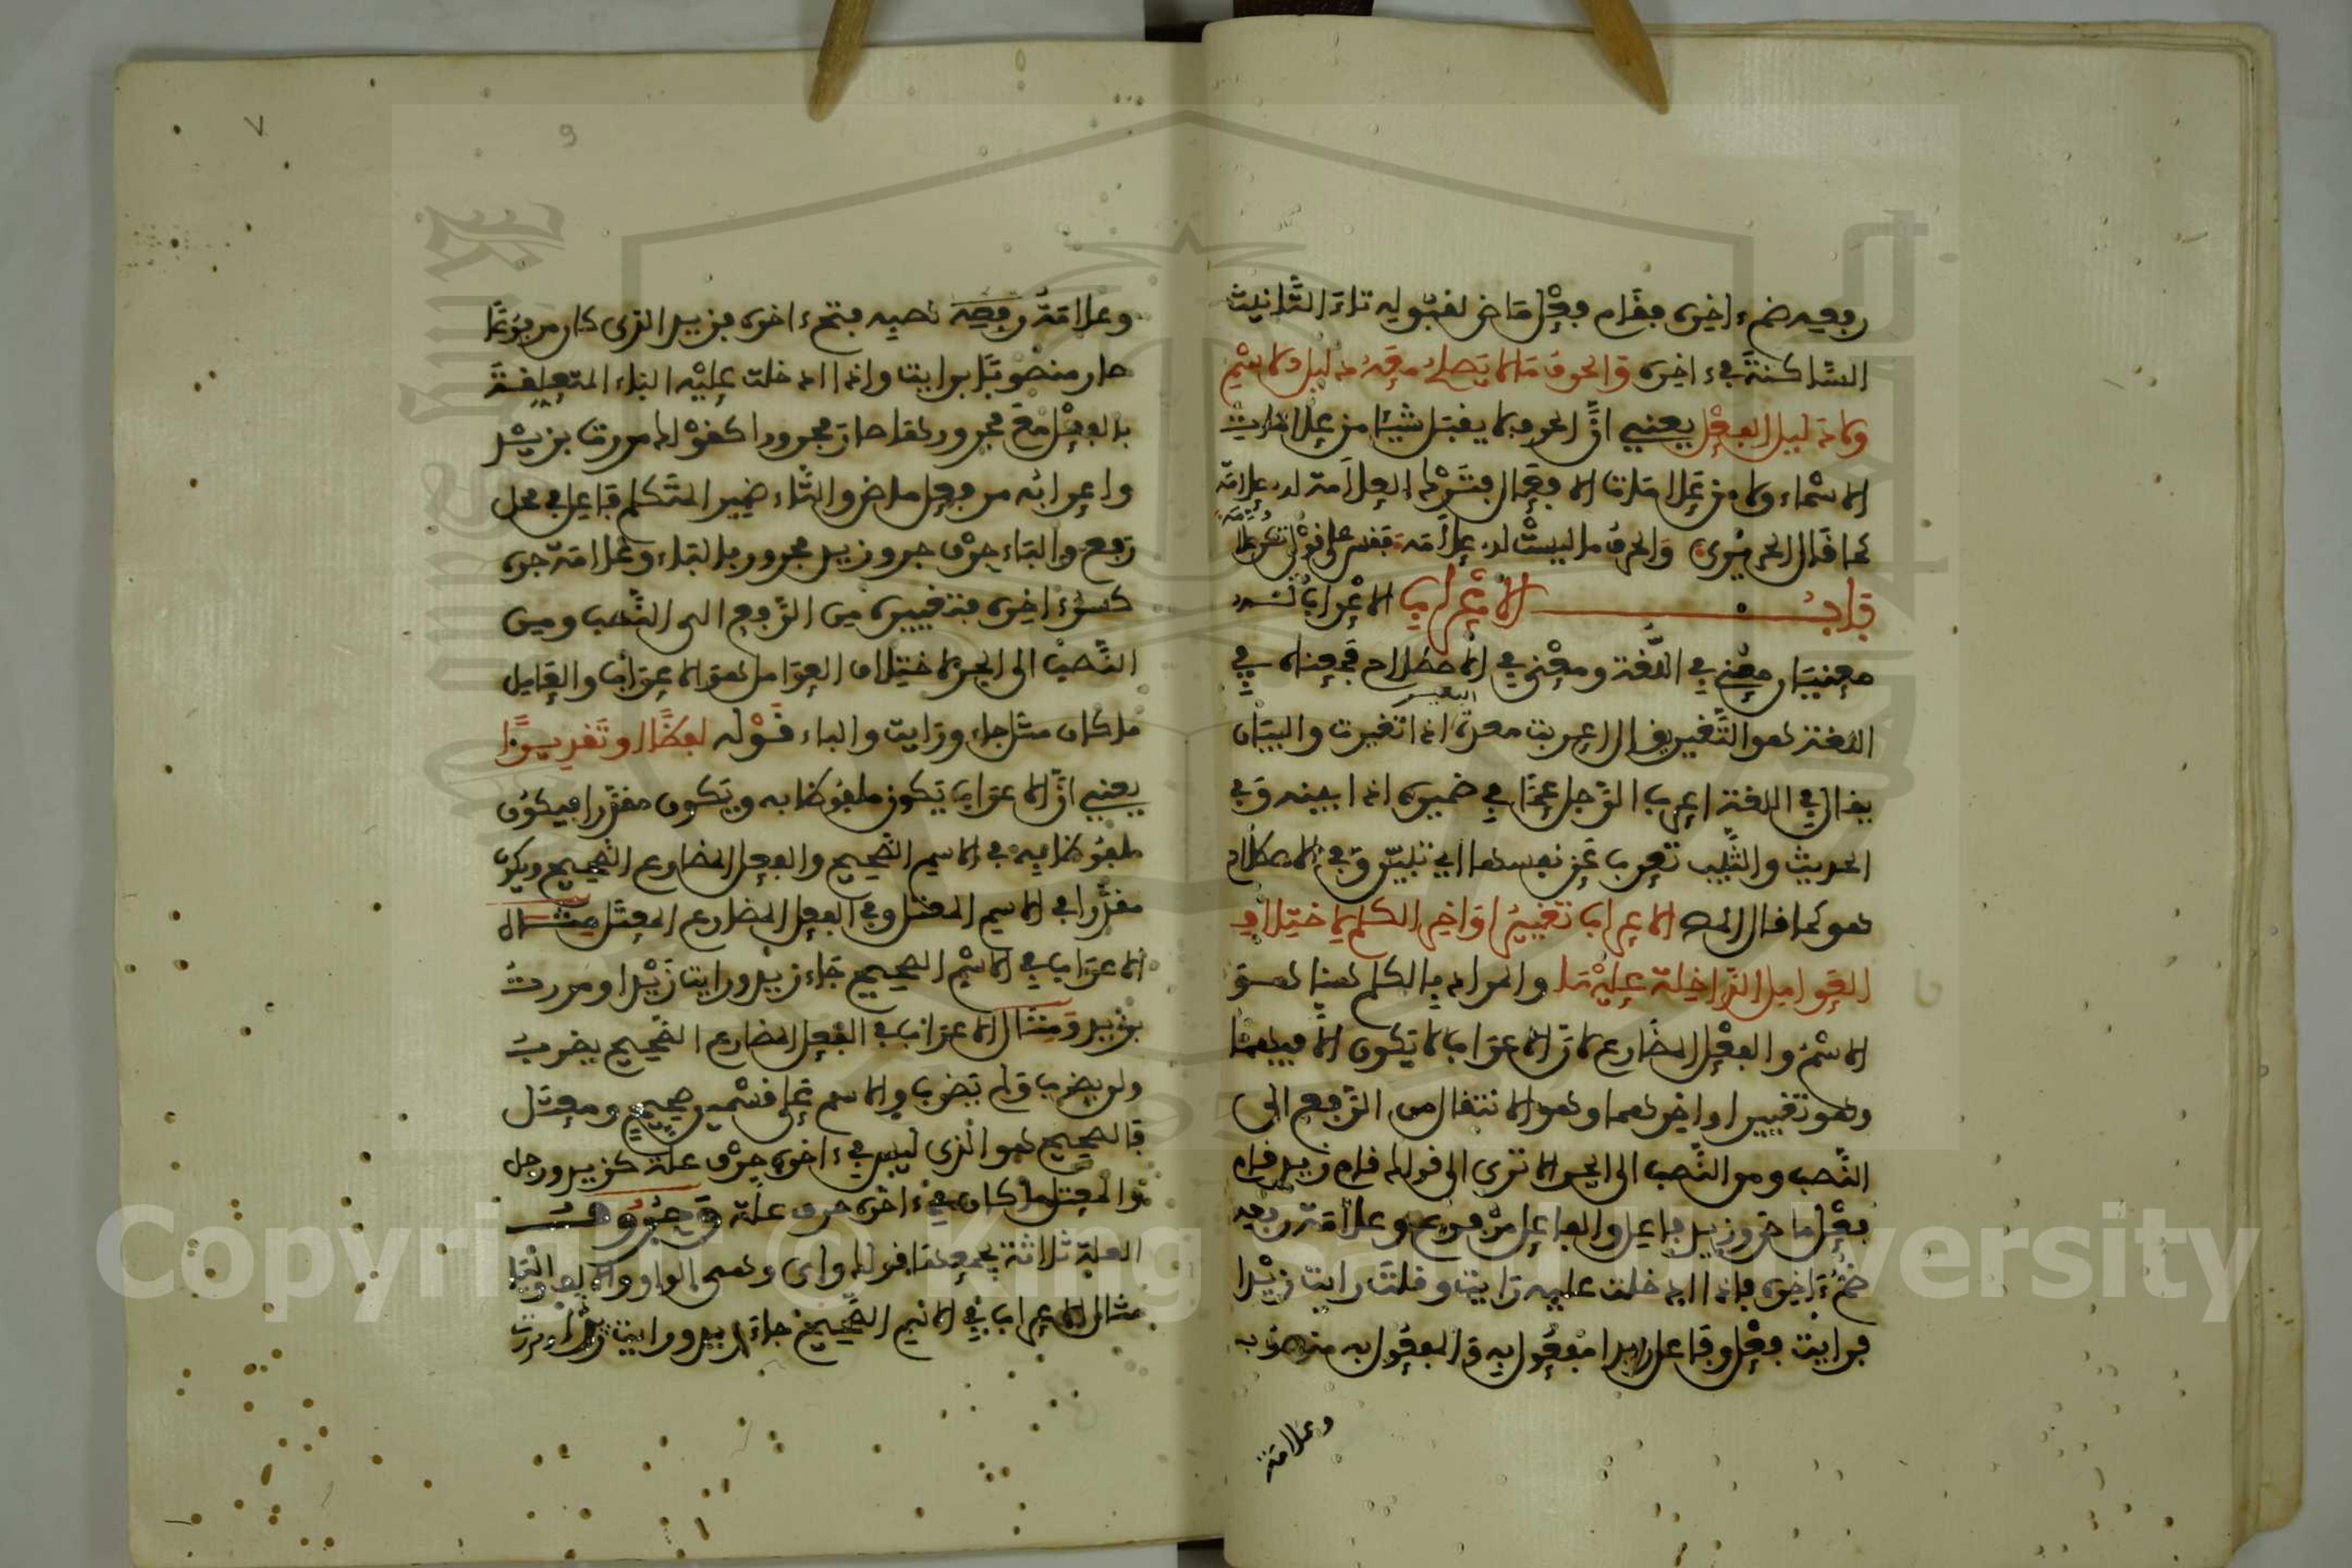 رفعه ضم ءاخره فقام فعل ماض لقبوله تاء التانيث
الساكنة في ءاخره والحرف ما لا يصلح معه دليل الاسم
ولا دليل الفعل يعني ان الحرف لا يقبل شيئا من علامات
الاسماء ولا من علامات الافعال فترك العلامة له علامة
كما قال الحريري والحرف ما ليست له علامة فقس على قولي تكن علامة
باب الاعراب الاعراب له
معنيان معنى في اللغة ومعنى في الاصطلاح فمعناه في
اللغة هو التغيير يقال اعربت معدة البعير اذا تغيرت والبيان
يقال في اللغة اعرب الرجل عما في ضميره اذا بينه وفي
الحديث والثيب تعرب عن نفسها اي تبين وفي الاصطلاح
هو كما قال المص الاعراب تغيير اواخر الكلم لاختلاف
العوامل الداخلة عليها والمراد بالكلم هنا هو
الاسم والفعل المضارع لان الاعراب لا يكون الا فيهما
وهو تغيير اواخرهما وهو الانتقال من الرفع الى
النصب ومن النصب الى الجر الا ترى الى قولك قام زيد قام
فعل ماض وزيد فاعل والفاعل مرفوع وعلامة رفعه
ضم ءاخره فاذا ادخلت عليه رايت وقلت رايت زيدا
فرايت فعل وفاعل زيدا مفعول به والمفعول به منصوب
وعلامة
وعلامة رفعه نصبه فتح ءاخره فزيد الذي كان مرفوعا
صار منصوبا برايت واذا ادخلت عليه الباء المتعلقة
بالفعل مع مجرورها صار مجرورا كقولك مررت بزيد
واعرابه مر فعل ماض والتاء ضمير المتكلم فاعل في محل
رفع والباء حرف جر وزيد مجرور بالباء وعلامة جره
كسر ءاخره فتغييره من الرفع الى النصب ومن
النصب الى الجر لاختلاف العوامل هو الاعراب والعامل
ما كان مثل جاء ورايت والباء قوله لفظا او تقديرا
يعني ان الاعراب يكون ملفوظا به ويكون مقدرا فيكون
ملفوظا به في الاسم الصحيح والفعل المضارع الصحيح ويكون
مقدرا في الاسم المعتل وفي الفعل المضارع المعتل مثال
الاعراب في الاسم الصحيح جاء زيد ورايت زيدا ومررت
بزيد ومثال الاعراب في الفعل المضارع الصحيح يضرب
ولن يضرب ولم يضرب والاسم على قسمين صحيح ومعتل
فالصحيح هو الذي ليس في ءاخره حرف علة كزيد ورجل
والمعتل ما كان في ءاخره حرف علة وحروف
العلة ثلاثة يجمعها قولك واي وهي الواو والالف والياء
مثال الاعراب في الاسم الصحيح جاء زيد ورايت زيدا ومررت
٧
9
Copyright © King Saud University